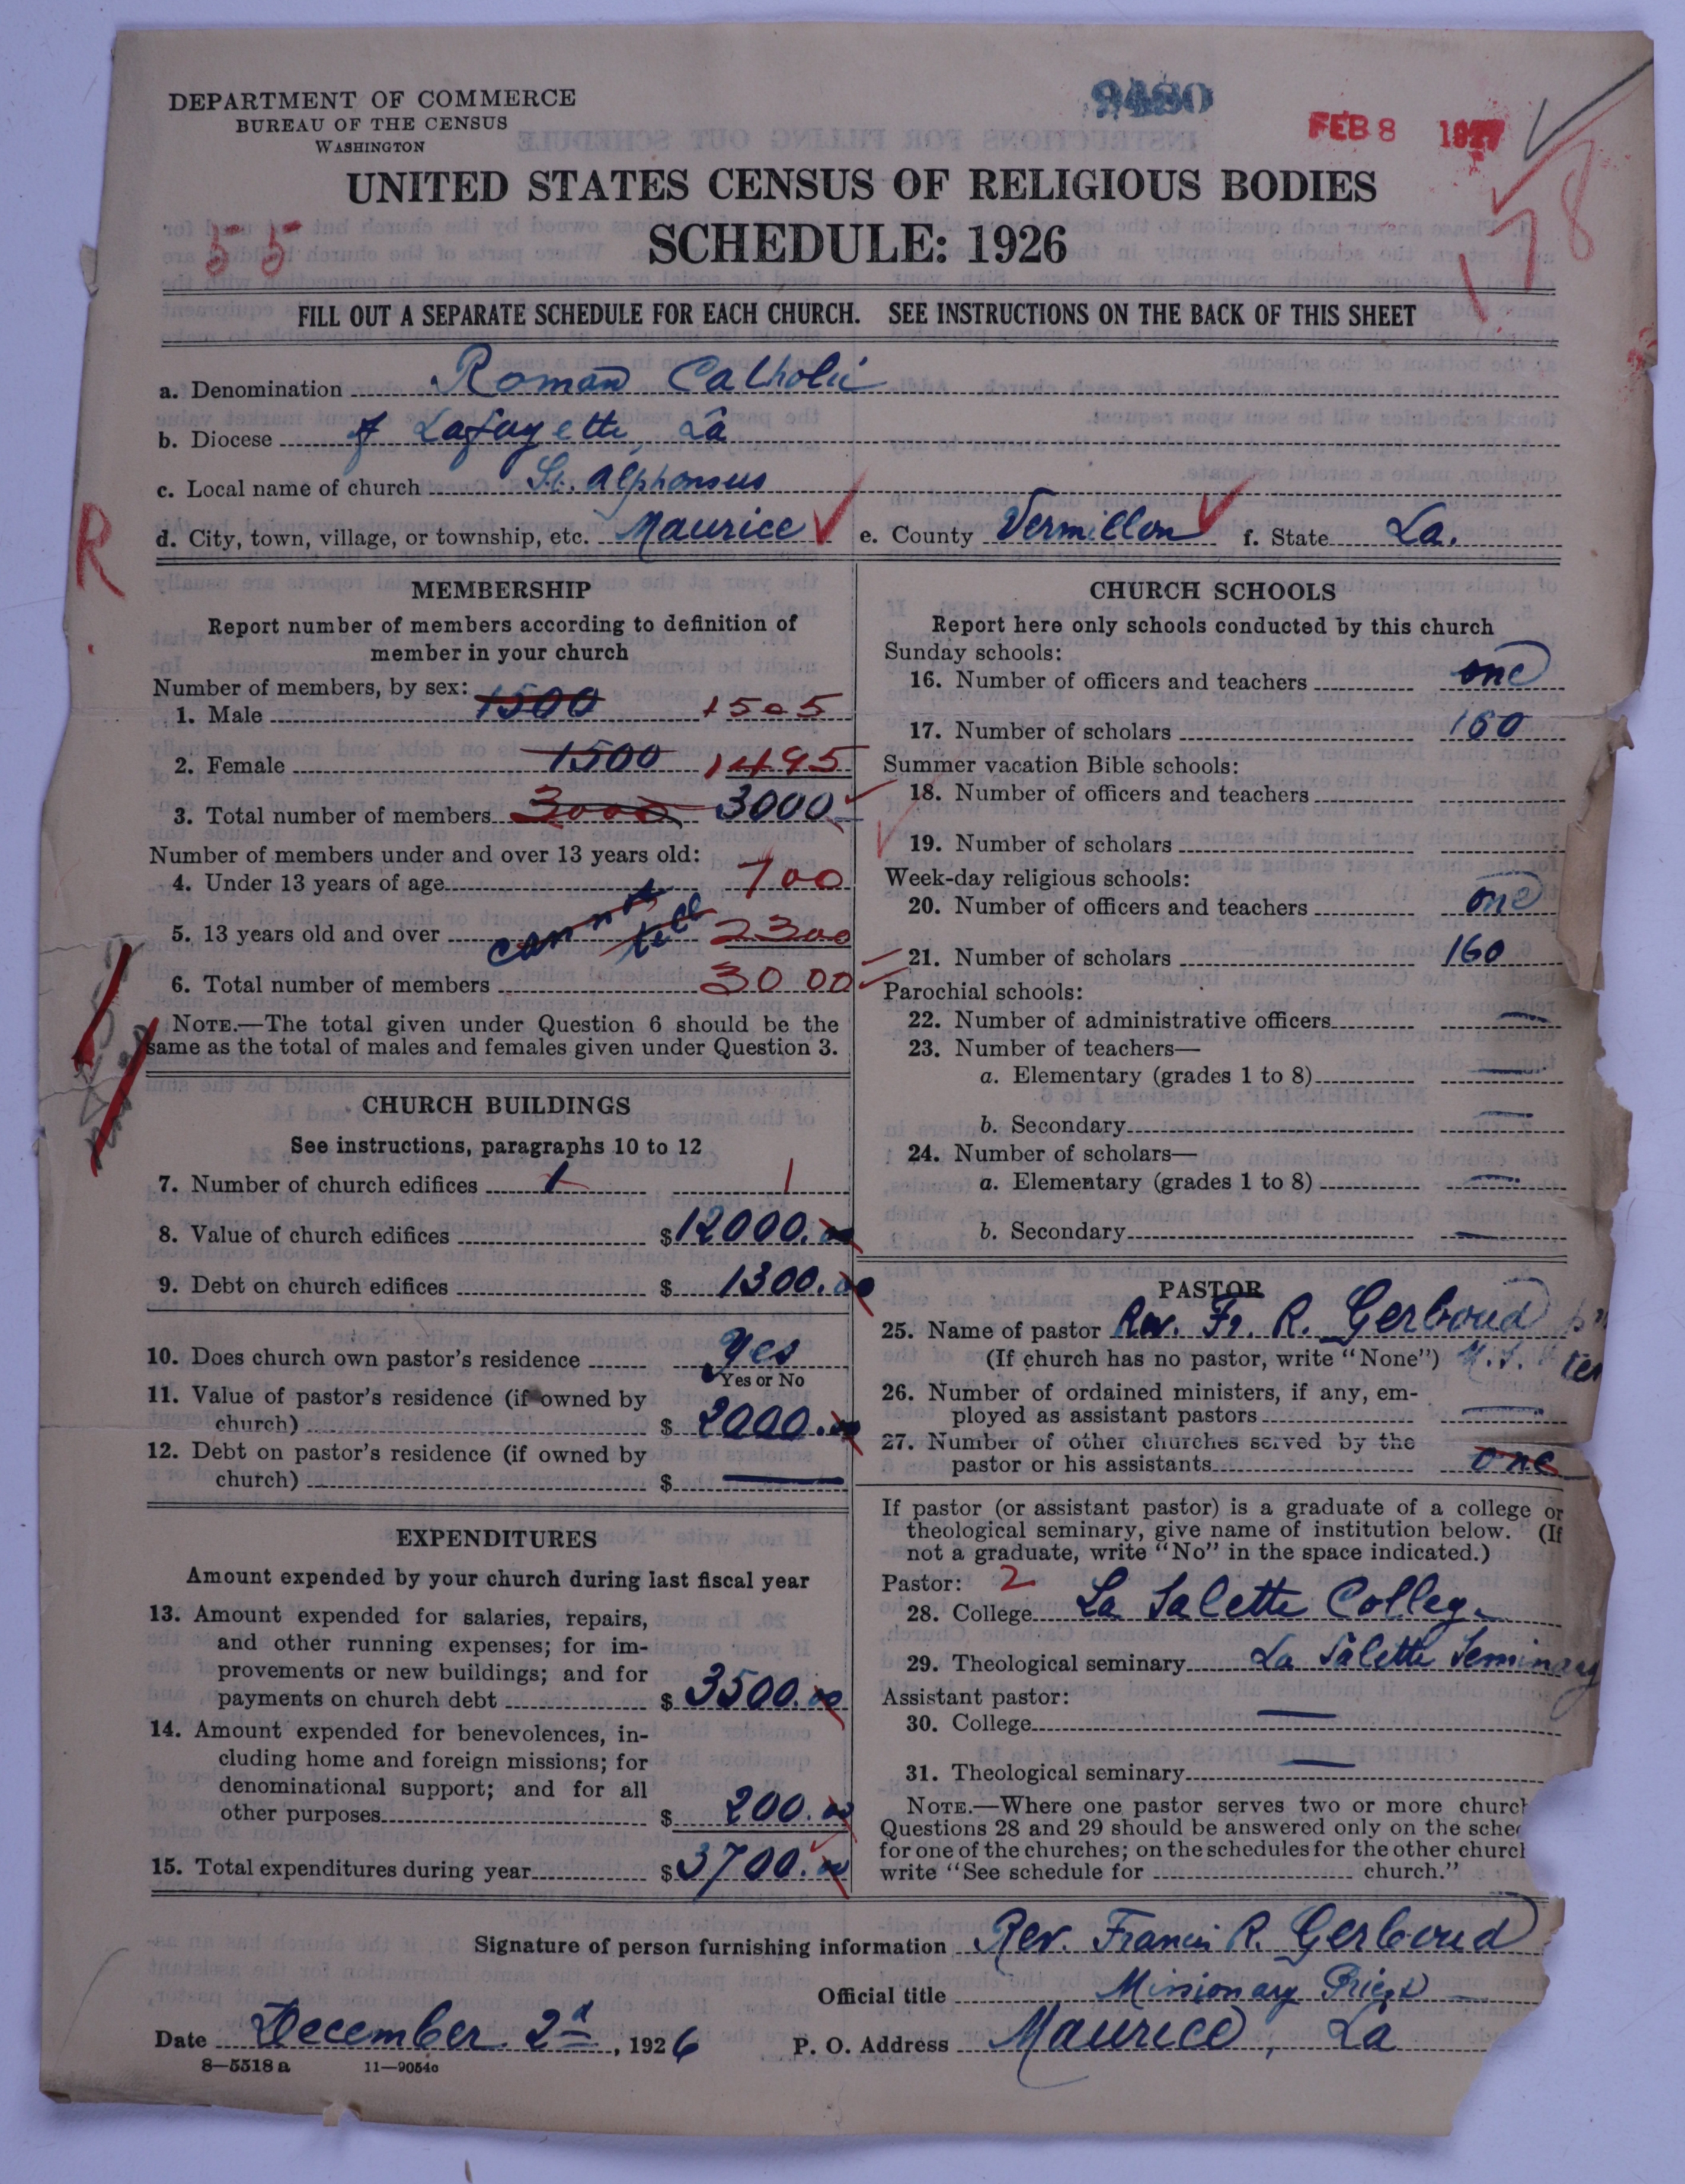 DEPARTMENT OF COMMERCE
BUREAU OF THE CENSUS
WASHINGTON
9480
FEB 8 1927
UNITED STATES CENSUS OF RELIGIOUS BODIES
55
SCHEDULE: 1926
178
FILL OUT A SEPARATE SCHEDULE FOR EACH CHURCH. SEE INSTRUCTIONS ON THE BACK OF THIS SHEET
a. Denomination Roman Catholic
b. Diocese of Lafayette, La
c. Local name of church St. Alphonsus
d. City, town, village, or township, etc. Maurice e. County Vermillon f. State La.
R
MEMBERSHIP
Report number of members according to definition of
member in your church
Number of members, by sex:
1. Male 1500 1505
2. Female 1500 1495
3. Total number of members 3000 3000
Number of members under and over 13 years old:
4. Under 13 years of age 700
5. 13 years old and over cannot tell 2300
6. Total number of members 3000
NOTE.—The total given under Question 6 should be the
same as the total of males and females given under Question 3.
CHURCH BUILDINGS
See instructions, paragraphs 10 to 12
7. Number of church edifices 1 1
8. Value of church edifices $12000.00
9. Debt on church edifices $ 1300.00
10. Does church own pastor's residence Yes
Yes or No
11. Value of pastor's residence (if owned by
church) $ 2000.00
12. Debt on pastor's residence (if owned by
church) $ —
EXPENDITURES
Amount expended by your church during last fiscal year
13. Amount expended for salaries, repairs,
and other running expenses; for im-
provements or new buildings; and for
payments on church debt $ 3500.00
14. Amount expended for benevolences, in-
cluding home and foreign missions; for
denominational support; and for all
other purposes $ 200.00
15. Total expenditures during year $3700.00
CHURCH SCHOOLS
Report here only schools conducted by this church
Sunday schools:
16. Number of officers and teachers one
17. Number of scholars 160
Summer vacation Bible schools:
18. Number of officers and teachers
19. Number of scholars
Week-day religious schools:
20. Number of officers and teachers one
21. Number of scholars 160
Parochial schools:
22. Number of administrative officers —
23. Number of teachers—
a. Elementary (grades 1 to 8) —
b. Secondary —
24. Number of scholars—
a. Elementary (grades 1 to 8) —
b. Secondary —
PASTOR
25. Name of pastor Rev. Fr. R. Gerboud
(If church has no pastor, write "None")
26. Number of ordained ministers, if any, em-
ployed as assistant pastors —
27. Number of other churches served by the
pastor or his assistants one
If pastor (or assistant pastor) is a graduate of a college or
theological seminary, give name of institution below. (If
not a graduate, write "No" in the space indicated.)
Pastor: 2
28. College La Salette College
29. Theological seminary La Salette Seminary
Assistant pastor:
30. College —
31. Theological seminary —
NOTE.—Where one pastor serves two or more church
Questions 28 and 29 should be answered only on the sche
for one of the churches; on the schedules for the other church
write "See schedule for church."
Signature of person furnishing information Rev. Francis R. Gerboud
Official title Missionary Priest
Date December 2d, 1926 P. O. Address Maurice, La
8—5518 a 11—9054c